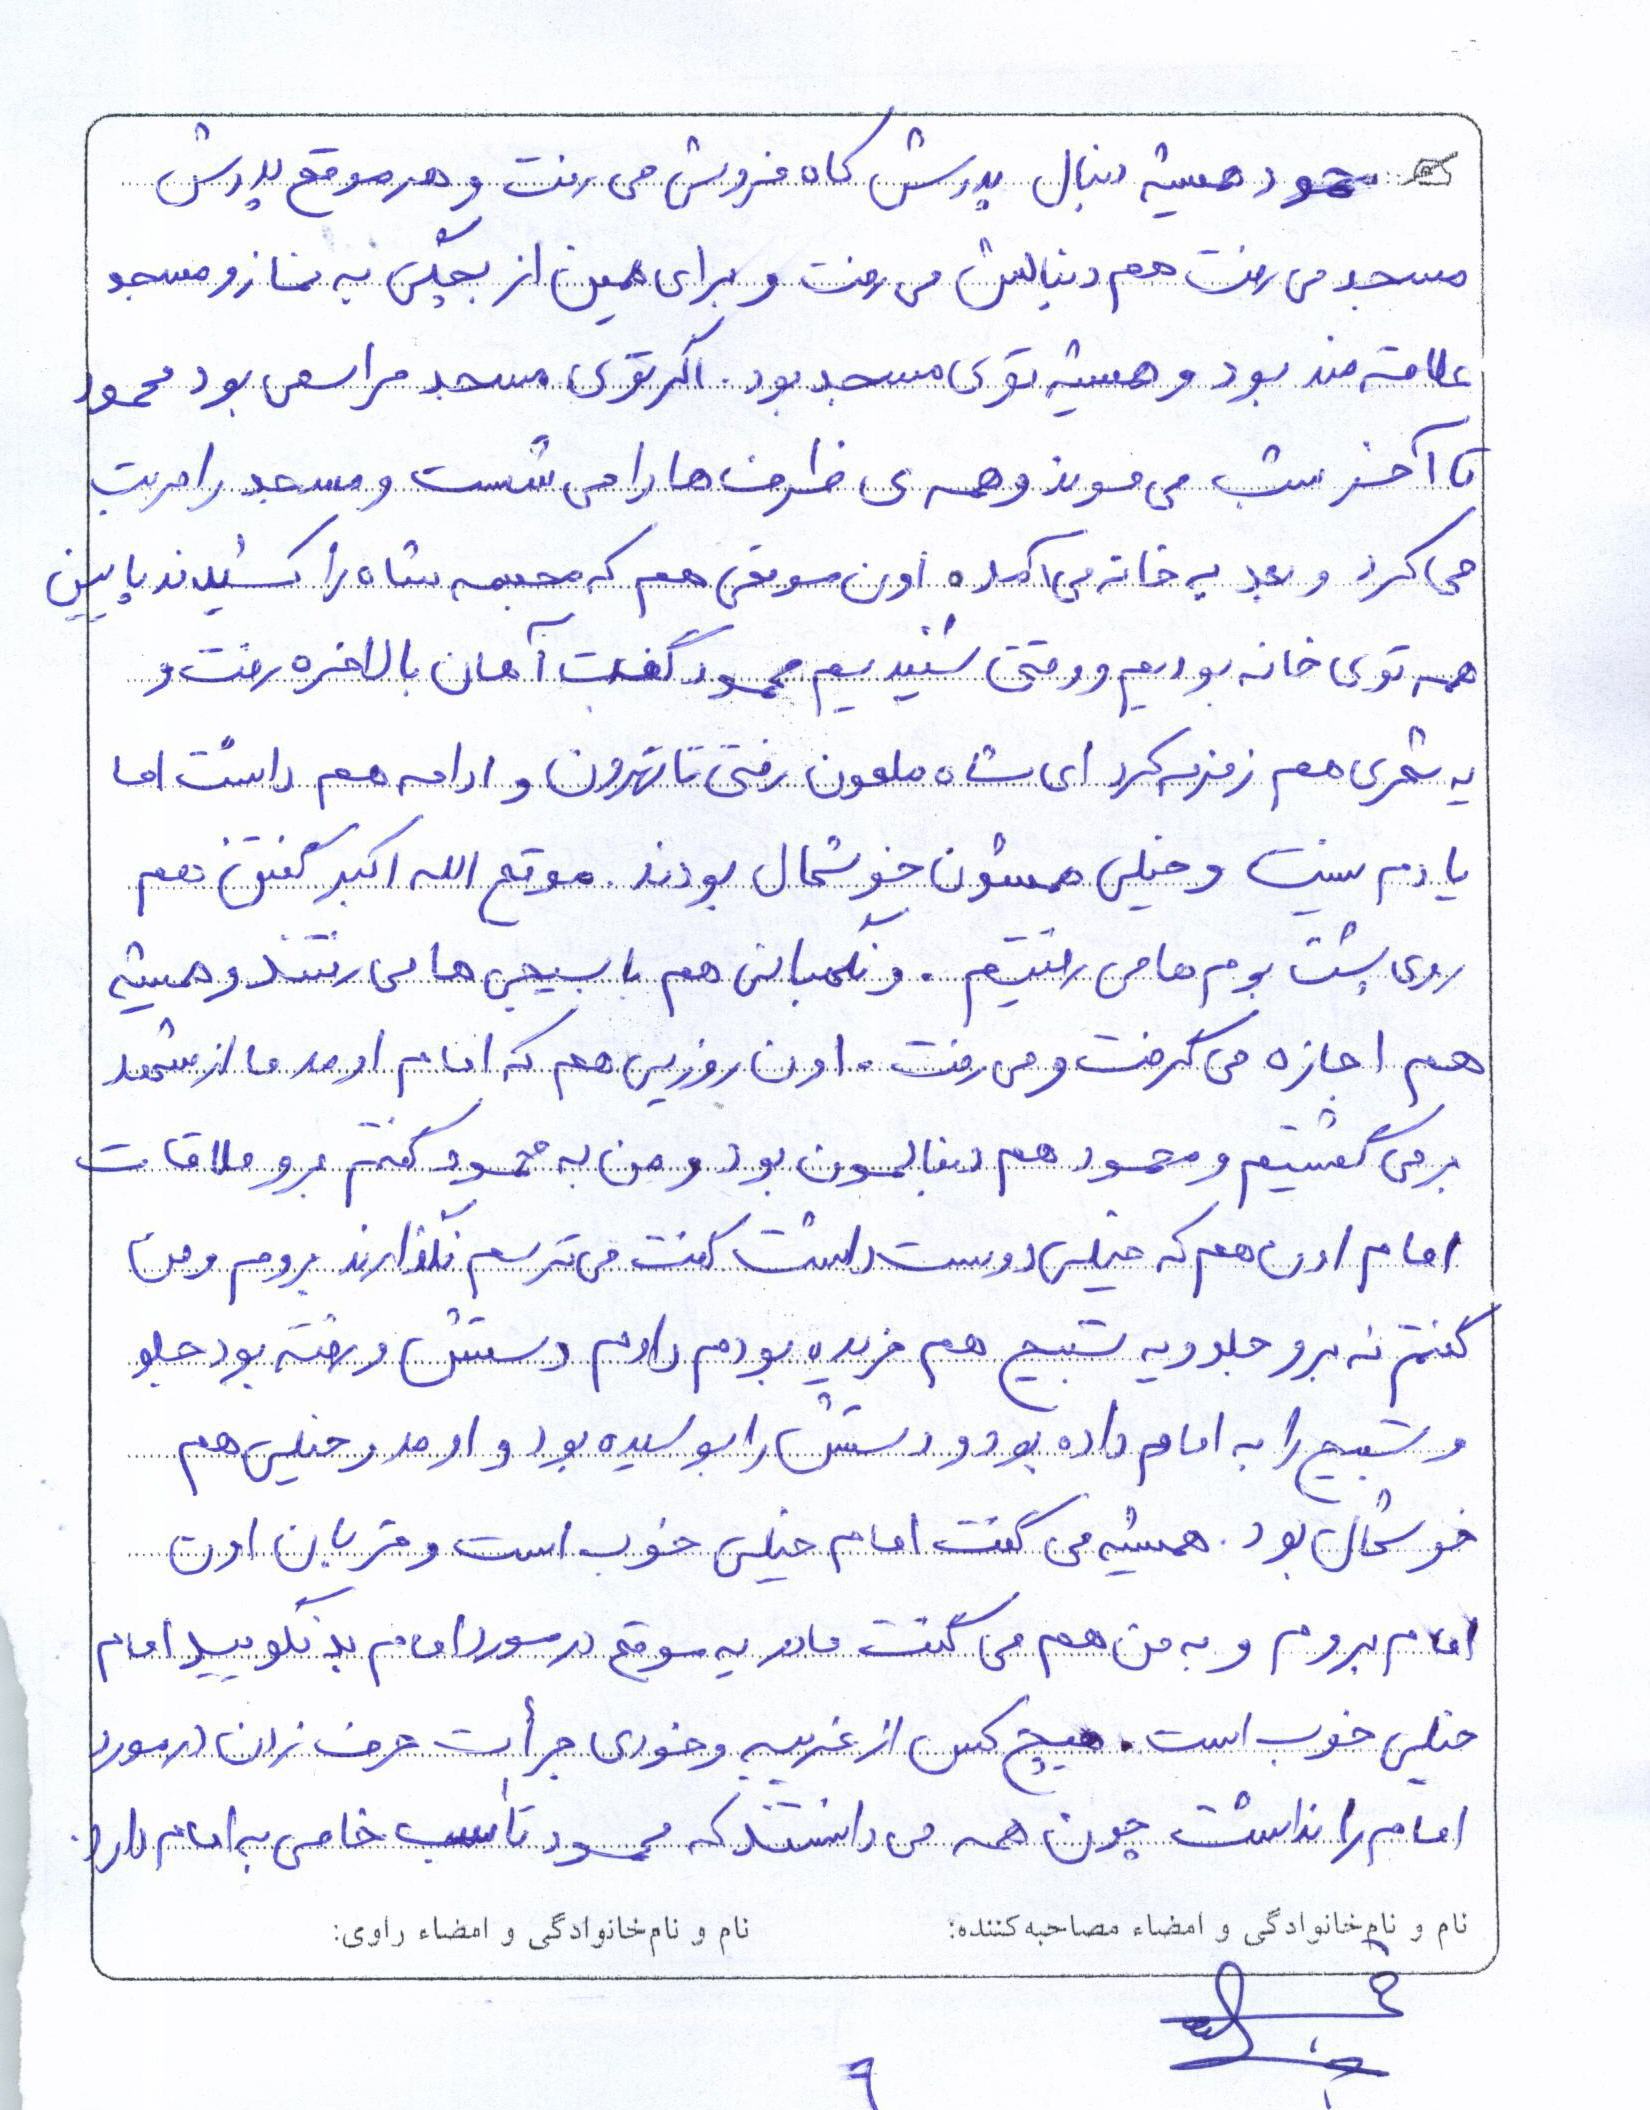 محمود همیشه دنبال پدرش کاه فروش می رفت و هر موقع پدرش
مسجد می رفت هم دنبالش می رفت و برای همین از بچگی به نماز و مسجد
علاقه مند بود و همیشه توی مسجد بود. اگر توی مسجد مراسمی بود محمود
تا آخر شب می موند و همه ی ظرف ها را می شست و مسجد را مرتب
می کرد و بعد به خانه می آمد. اون موقعی هم که مجسمه شاه را کشیدند پایین
همه توی خانه بودیم و وقتی شنیدیم محمود گفت آهان بالاخره رفت و
یه شعری هم زمزمه کرد ای شاه ملعون رفتی تا تهرون و ادامه هم داشت اما
یادم نیست و خیلی همشون خوشحال بودند. موقع الله اکبر گفتن هم
روی پشت بوم ها می رفتیم. و نگهبانی هم با بسیجی ها می رفتند و همیشه
هم اجازه می گرفت و می رفت. اون روزیی هم که امام اومد ما از مشهد
برمی گشتیم و محمود هم دنبالمون بود و من به محمود گفتم برو ملاقات
امام اون هم که خیلی دوست داشت گفت می ترسم نگذارند بروم و من
گفتم نه برو جلو و یه تسبیح هم خریده بودم دادم دستش و رفته بود جلو
و تسبیح را به امام داده بود و دستش را بوسیده بود و اومد و خیلی هم
خوشحال بود. همیشه می گفت امام خیلی خوب است و قربان اون
امام بروم و به من هم می گفت مادر یه موقع در مورد امام بد نگویید امام
خیلی خوب است. هیچ کس از غریبه و خودی جرأت حرف زدن در مورد
امام را نداشت چون همه می دانستند که محمود تأسب خاصی به امام دارد.
نام و نام‌خانوادگی و امضاء مصاحبه‌کننده: نام و نام‌خانوادگی و امضاء راوی:
۹